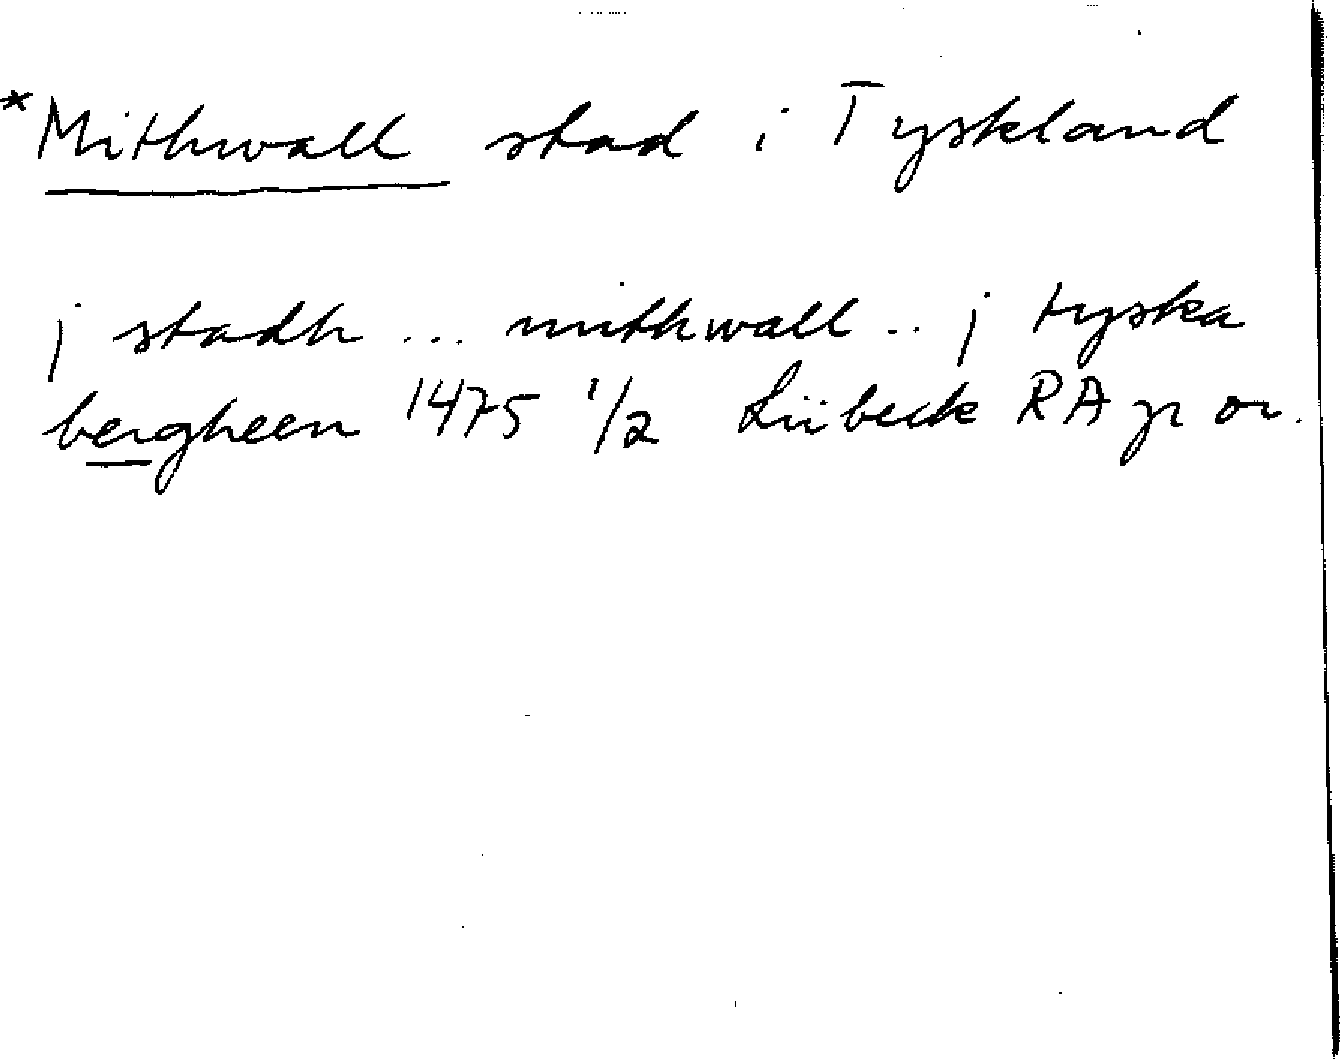 *Mithwall stad i Tyskland
j stadh ... mithwall .. j tyska
bergheen 1475 1/2 Lübeck RAp or.